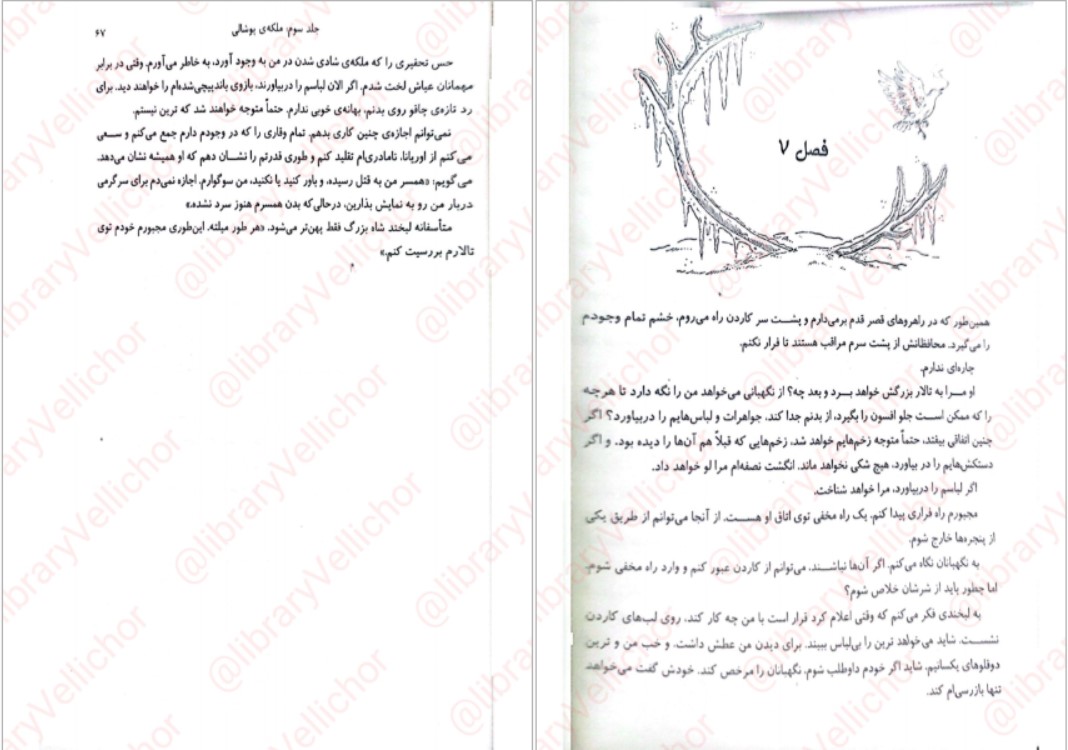 جلد سوم: ملکه‌ی پوشالی ۶۷
حس تحقیری را که ملکه‌ی شادی شدن در من به وجود آورد، به خاطر می‌آورم. وقتی در برابر
مهمانان عیاش لخت شدم. اگر الان لباسم را دربیاورند، بازوی باندپیچی‌شده‌ام را خواهند دید. برای
رد تازه‌ی چاقو روی بدنم، بهانه‌ی خوبی ندارم. حتماً متوجه خواهند شد که ترین نیستم.
نمی‌توانم اجازه‌ی چنین کاری بدهم. تمام وقاری را که در وجودم دارم جمع می‌کنم و سعی
می‌کنم از اوریانا، نامادری‌ام تقلید کنم و طوری قدرتم را نشان دهم که او همیشه نشان می‌دهد.
می‌گویم: «همسر من به قتل رسیده، و باور کنید یا نکنید، من سوگوارم. اجازه نمی‌دم برای سرگرمی
دربار من رو به نمایش بذارین، درحالی‌که بدن همسرم هنوز سرد نشده.»
متأسفانه لبخند شاه بزرگ فقط پهن‌تر می‌شود. «هر طور میلته. این‌طوری مجبورم خودم توی
تالارم بررسیت کنم.»
فصل ۷
همین‌طور که در راهروهای قصر قدم برمی‌دارم و پشت سر کاردن راه می‌روم، خشم تمام وجودم
را می‌گیرد. محافظانش از پشت سرم مراقب هستند تا فرار نکنم.
چاره‌ای ندارم.
او مرا به تالار بزرگش خواهد برد و بعد چه؟ از نگهبانی می‌خواهد من را نگه دارد تا هرچه
را که ممکن است جلو افسون را بگیرد، از بدنم جدا کند. جواهرات و لباس‌هایم را دربیاورد؟ اگر
چنین اتفاقی بیفتد، حتماً متوجه زخم‌هایم خواهد شد، زخم‌هایی که قبلاً هم آن‌ها را دیده بود. و اگر
دستکش‌هایم را در بیاورد، هیچ شکی نخواهد ماند. انگشت نصفه‌ام مرا لو خواهد داد.
اگر لباسم را دربیاورد، مرا خواهد شناخت.
مجبورم راه فراری پیدا کنم. یک راه مخفی توی اتاق او هست. از آنجا می‌توانم از طریق یکی
از پنجره‌ها خارج شوم.
به نگهبانان نگاه می‌کنم. اگر آن‌ها نباشند، می‌توانم از کاردن عبور کنم و وارد راه مخفی شوم.
اما چطور باید از شرشان خلاص شوم؟
به لبخندی فکر می‌کنم که وقتی اعلام کرد قرار است با من چه کار کند، روی لب‌های کاردن
نشست. شاید می‌خواهد ترین را بی‌لباس ببیند. برای دیدن من عطش داشت، و خب من و ترین
دوقلوهای یکسانیم. شاید اگر خودم داوطلب شوم، نگهبانان را مرخص کند. خودش گفت می‌خواهد
تنها بازرسی‌ام کند.
@libraryVellichor